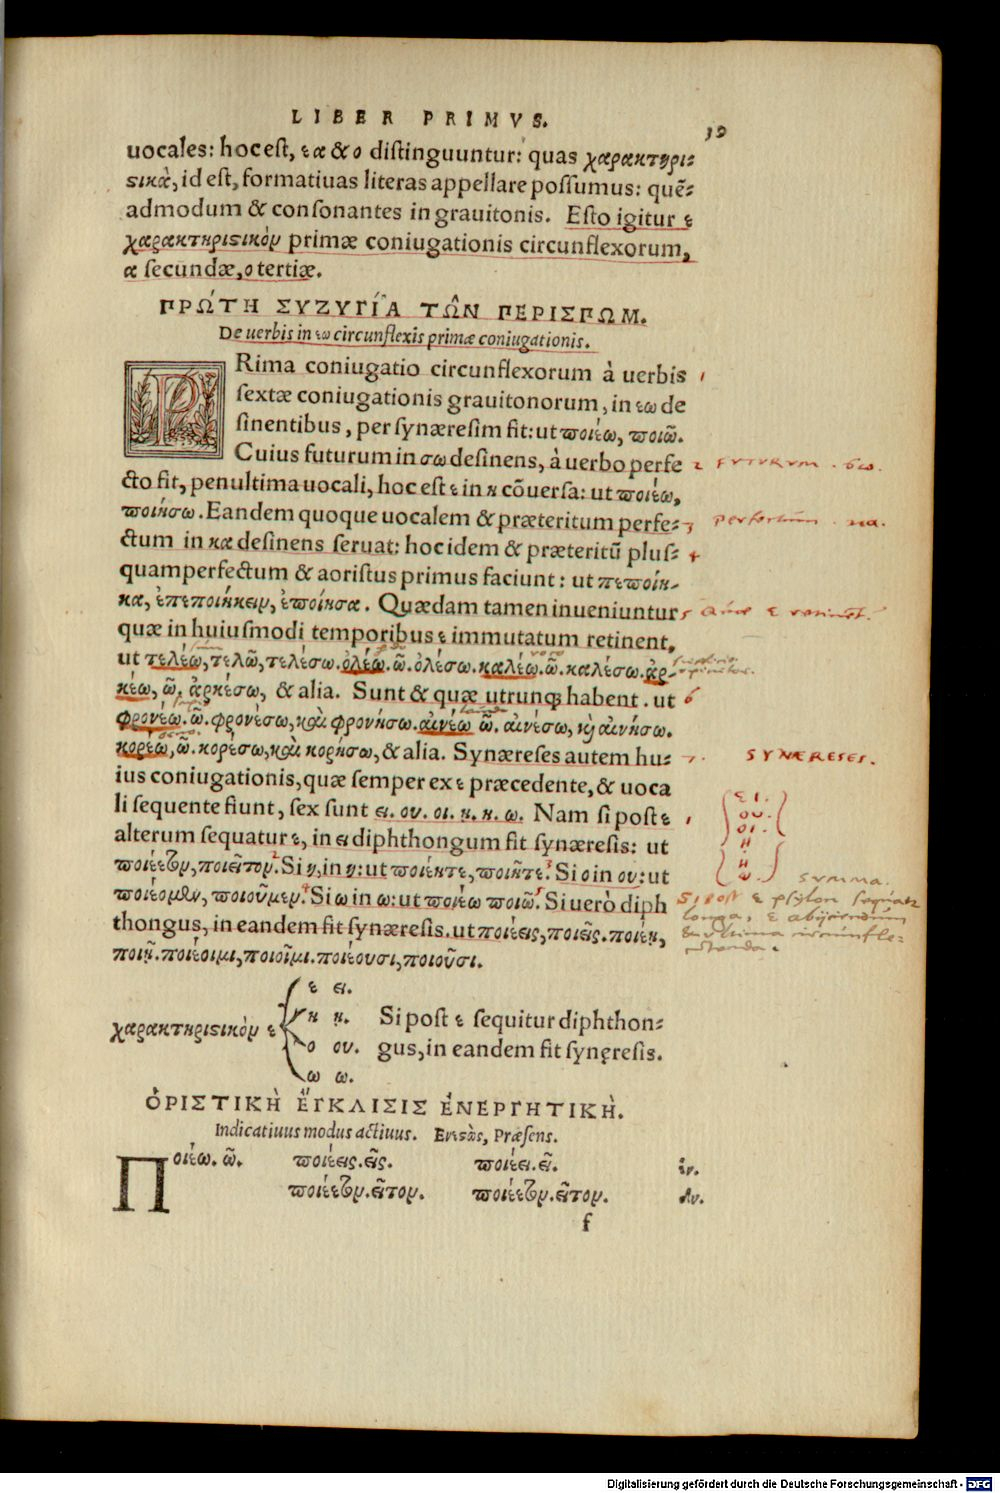 LIBER PRIMVS.
39
uocales: hoc est, ε α & ο distinguuntur: quas χαρακτηρι⸗
ϛικὰ, id est, formatiuas literas appellare possumus: quē⸗
admodum & consonantes in grauitonis. Esto igitur ε
χαρακτηριϛικὸν primæ coniugationis circunflexorum,
α secundæ, ο tertiæ.
ΠΡΏΤΗ ΣΥΖΥΓΊΑ ΤΩ͂Ν ΠΕΡΙΣΠΩΜ.
De uerbis in εω circunflexis primæ coniugationis.
PRima coniugatio circunflexorum à uerbis
sextæ coniugationis grauitonorum, in εω de
sinentibus, per synæresim fit: ut ποιέω, ποιῶ.
Cuius futurum in σω desinens, à uerbo perfe
cto fit, penultima uocali, hoc est ε in η cōuersa: ut ποιέω,
ποιήσω. Eandem quoque uocalem & præteritum perfe⸗
ctum in κα desinens seruat: hoc idem & præteritū plus⸗
quamperfectum & aoristus primus faciunt: ut πεποίη⸗
κα, ἐπεποιήκειν, ἐποίησα. Quædam tamen inueniuntur
quæ in huiusmodi temporibus ε immutatum retinent,
ut τελέω, τελῶ, τελέσω. ὀλέω. ῶ. ὀλέσω. καλέω. ῶ. καλέσω. ἀρ⸗
κέω, ῶ. ἀρκέσω, & alia. Sunt & quæ utrunq; habent. ut
φρονέω. ῶ. φρονέσω, καὶ φρονήσω. αἰνέω ῶ. αἰνέσω, κὶ αἰνήσω.
κορέω, ῶ. κορέσω, καὶ κορήσω, & alia. Synæreses autem hu⸗
ius coniugationis, quæ semper ex ε præcedente, & uoca
li sequente fiunt, sex sunt ει. ου. οι. η. ῃ. ω. Nam si post ε
alterum sequatur ε, in ει diphthongum fit synæresis: ut
ποιέετον, ποιεῖτον. Si η, in η: ut ποιέητε, ποιῆτε. Si ο in ου: ut
ποιέομεν, ποιοῦμεν. Si ω in ω: ut ποιέω ποιῶ. Si uerò diph
thongus, in eandem fit synæresis. ut ποιέεις, ποιεῖς. ποιέῃ,
ποιῇ. ποιέοιμι, ποιοῖμι. ποιέουσι, ποιοῦσι.
ε ει.
η η. Si post ε sequitur diphthon⸗
χαρακτηριϛικὸν ε
ο ου. gus, in eandem fit synęresis.
ω ω.
ὉΡΙΣΤΙΚῊ ἜΓΚΛΙΣΙΣ ἘΝΕΡΓΗΤΙΚΉ.
Indicatiuus modus actiuus. Ενεϛὼς, Præsens.
Ποιέω. ῶ. ποιέεις. εῖς. ποιέει. εῖ. ἑν.
ποιέετον. εῖτον. ποιέετον. εῖτον. δυ.
f
futurum. σω.
perfectum. κα.
SYNÆRESES.
ει.
ου.
οι.
η
ῃ
ω.
summa.
Si post ε psylon sequatur
longa, ε abijciendum
& ultima circunfle⸗
ctenda.
Digitalisierung gefördert durch die Deutsche Forschungsgemeinschaft - DFG